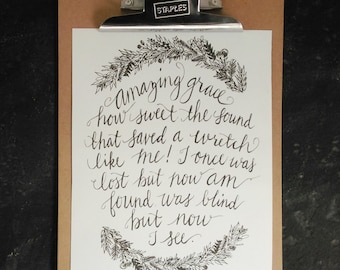 STAPLES
amazing grace
how sweet the sound
that saved a wretch
like me! I once was
lost but now am
found was blind
but now
I see.